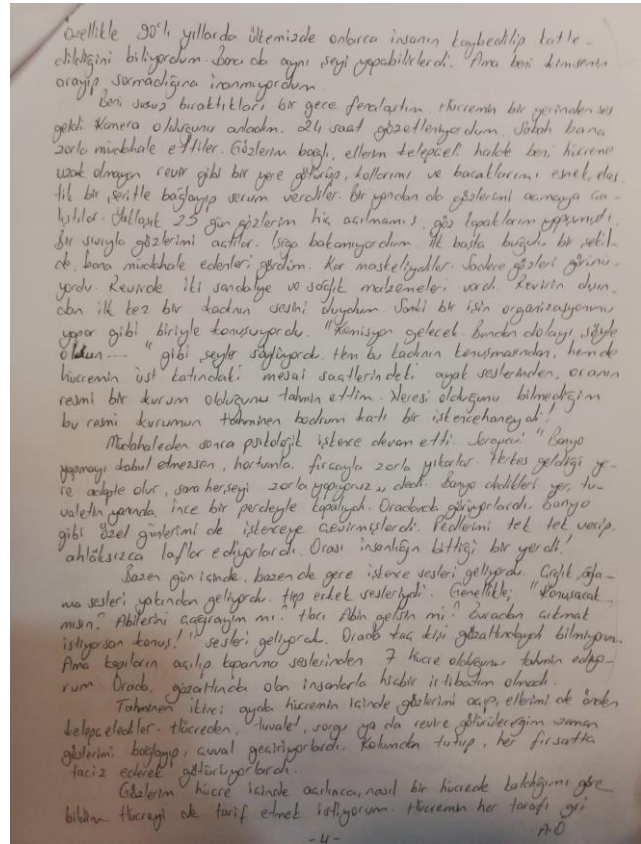 özellikle 90'lı yıllarda ülkemizde onlarca insanın kaybedilip katle-
dildiğini biliyordum. Bana da aynı şeyi yapabilirlerdi. Ama beni kimsenin
arayıp sormadığına inanmıyordum.
Beni susuz bıraktıkları bir gece fenalaştım. Hücremin bir yerinden ses
geldi. Kamera olduğunu anladım. 24 saat gözetleniyordum. Sabah bana
zorla müdahale ettiler. Gözlerim bağlı, ellerim kelepçeli halde beni hücreme
uzak olmayan revir gibi bir yere götürüp, kollarımı ve bacaklarımı esnek, elas-
tik bir şeritle bağlayıp serum verdiler. Bir yandan da gözlerimi açmaya ça-
lıştılar. Yaklaşık 25 gün gözlerim hiç açılmamış, göz kapaklarım yapışmıştı.
Bir sıvıyla gözlerimi açtılar. Işığa bakamıyordum. İlk başta buğulu bir şekil-
de, bana müdahale edenleri gördüm. Kar maskeliydiler. Sadece gözleri görünü-
yordu. Revirde iki sandalye ve sağlık malzemeleri vardı. Revirin dışın-
dan ilk kez bir kadının sesini duydum. Sanki bir işin organizasyonunu
yapar gibi biriyle konuşuyordu. "Komisyon gelecek. Bundan dolayı, şöyle
olsun...." gibi şeyler söylüyordu. Hem bu kadının konuşmasından, hem de
hücremin üst katındaki mesai saatlerindeki ayak seslerinden, oranın
resmi bir kurum olduğunu tahmin ettim. Neresi olduğunu bilmediğim
bu resmi kurumun tahminen bodrum katı bir işkencehaneydi!
Müdahaleden sonra psikolojik işkence devam etti. Sorgucu "Banyo
yapmayı kabul etmezsen, hortumla, fırçayla zorla yıkarlar. Herkes geldiği ye-
re adapte olur, sana her şeyi zorla yapıyoruz" dedi. Banyo dedikleri yer, tu-
valetin yanında, ince bir perdeyle kapalıydı. Orada da görüyorlardı. Banyo
gibi özel günlerimi de işkenceye çevirmişlerdi. Pedlerimi tek tek verip,
ahlâksızca laflar ediyorlardı. Orası insanlığın bittiği bir yerdi!
Bazen gün içinde, bazen de gece işkence sesleri geliyordu. Çığlık, ağla-
ma sesleri yakından geliyordu. Hep erkek sesleriydi. Genellikle; "Konuşacak
mısın? Abilerini çağırayım mı? Hacı Abin gelsin mi? Buradan çıkmak
istiyorsan konuş!" sesleri geliyordu. Orada kaç kişi gözaltındaydı bilmiyorum.
Ama kapıların açılıp kapanma seslerinden 7 hücre olduğunu tahmin ediyo-
rum. Orada, gözaltında olan insanlarla hiçbir irtibatım olmadı.
Tahminen ikinci ayda hücremin içinde gözlerimi açıp, ellerimi de önden
kelepçelediler. Hücreden, tuvalet, sorgu ya da revire götürüleceğim zaman
gözlerimi bağlayıp, çuval geçiriyorlardı. Kolumdan tutup, her fırsatta
taciz ederek götürüyorlardı.
Gözlerim hücre içinde açılınca, nasıl bir hücrede kaldığımı göre
bildim. Hücreyi de tarif etmek istiyorum. Hücremin her tarafı gri
-4-
A.Ö